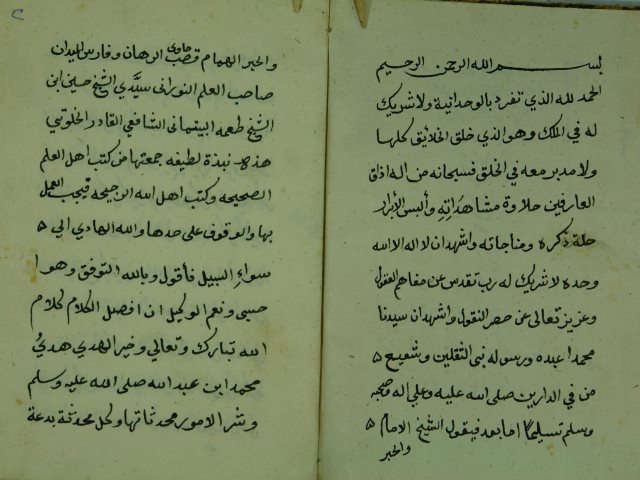 بسم الله الرحمن الرحيم
الحمد لله الذي تفرد بالوحدانية ولا شريك
له في الملك وهو الذي خلق الخلايق كلها
ولا مدبر معه في الخلق فسبحانه من اله اذاق
العارفين حلاوة مشاهداته وألبس الأبرار
حلة ذكره ومناجاته واشهد ان لا اله الا الله
وحده لا شريك له رب تقدس عن مفاهم العقول
وعزيز تعالى عن حصر النقول واشهد ان سيدنا
محمدا عبده ورسوله نبي الثقلين وشفيع ه
من في الدارين صلى الله عليه وعلى اله وصحبه
وسلم تسليما اما بعد فيقول الشيخ الامام ه
والحبر
والحبر الهمام حاوى قصب الرهان وفارس الميدان
صاحب العلم النوراني سيدي الشيخ حسين ابن
الشيخ طعمه البيتماني الشافعي القادري الخلوتي
هذه نبذة لطيفه جمعتها من كتب اهل العلم
الصحيحه وكتب اهل الله الرجيحه فيجب العمل
بها والوقوف على حدها والله الهادي الي ه
سواء السبيل فأقول وبالله التوفق وهوا
حسبي ونعم الوكيل ان افضل الكلام كلام
الله تبارك وتعالي وخير الهدي هدي
محمد ابن عبد الله صلى الله عليه وسلم
وشر الامور محدثاتها وكل محدثة بدعة